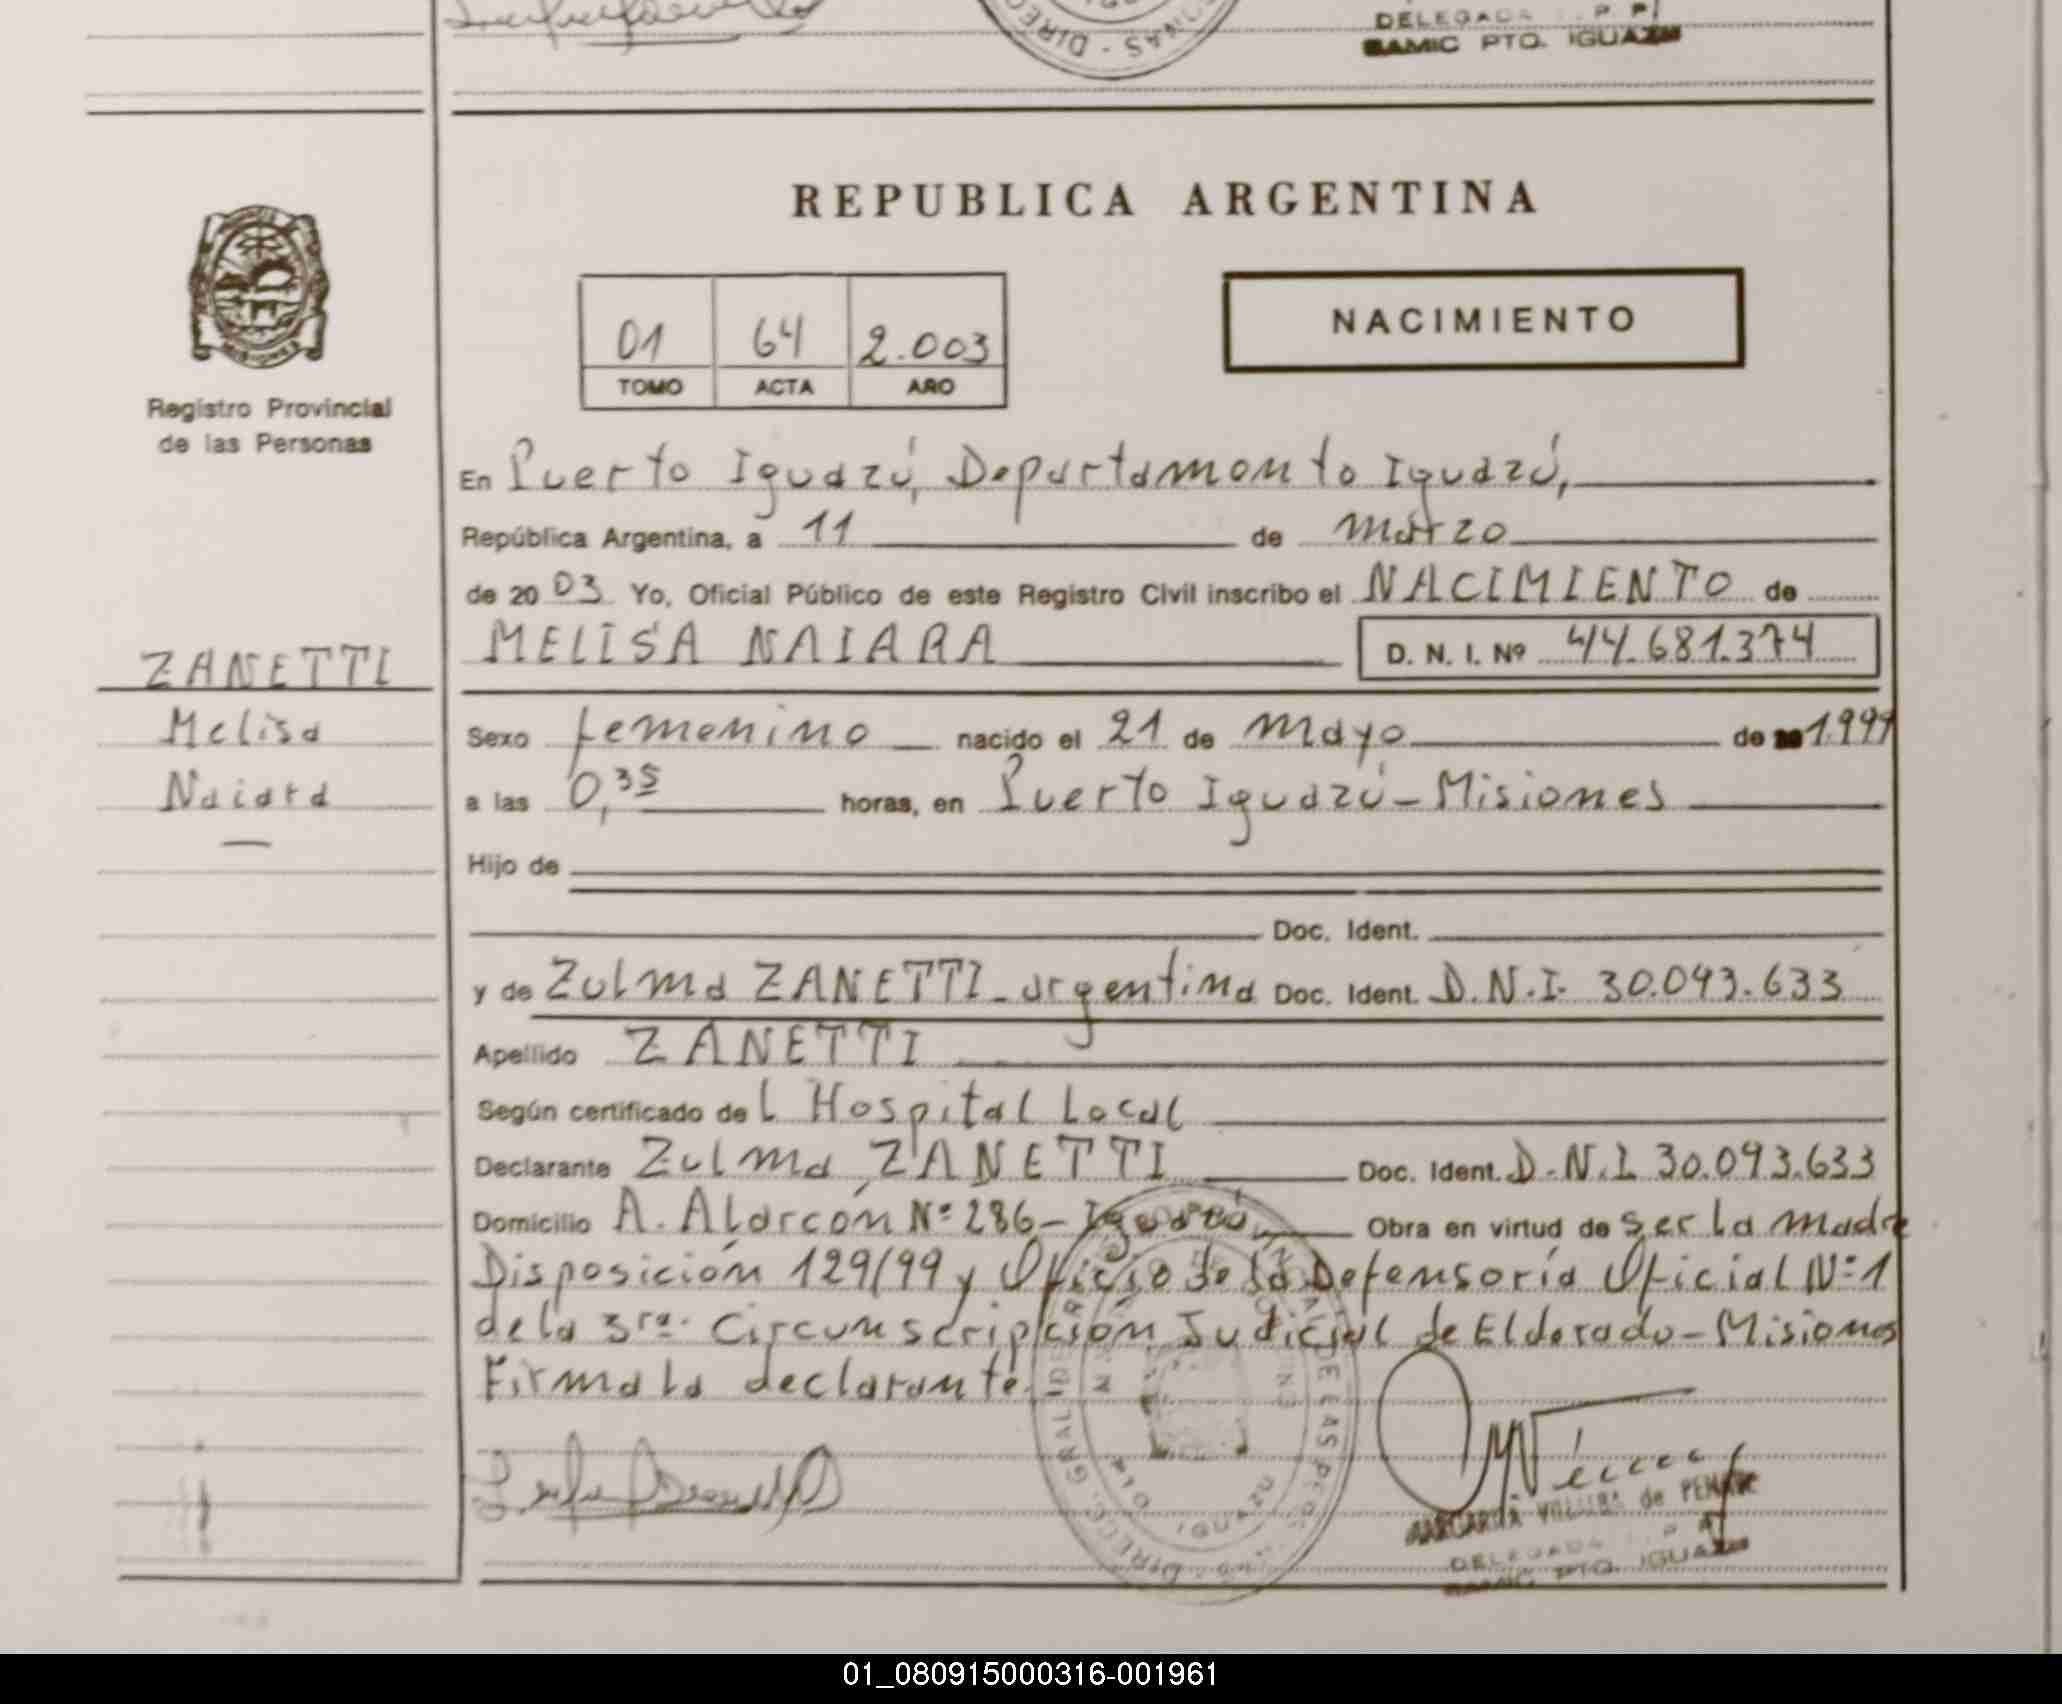 DELEGADA P. P.
SAMIC PTO. IGUAZU
REPUBLICA ARGENTINA
NACIMIENTO
01 64 2.003
TOMO ACTA AÑO
Registro Provincial
de las Personas
En Puerto Iguazú, Departamento Iguazú,
República Argentina, a 11 de marzo
de 20 03 Yo, Oficial Público de este Registro Civil inscribo el NACIMIENTO de
MELISA NAIARA D. N. I. Nº 44.681.374
ZANETTI
Melisa
Naiara
Sexo femenino nacido el 21 de mayo de 1.999
a las 0,35 horas, en Puerto Iguazú - Misiones
Hijo de
Doc. Ident.
y de Zulma ZANETTI - argentina Doc. Ident. D.N.I. 30.093.633
Apellido ZANETTI
Según certificado del Hospital Local
Declarante Zulma ZANETTI Doc. Ident. D.N.I. 30.093.633
Domicilio A. Alarcón Nº 286 - Iguazú Obra en virtud de ser la madre
Disposición 129/99 y Oficio de la Defensoría Oficial Nº 1
de la 3ra. Circunscripción Judicial de Eldorado - Misiones
Firma la declarante.
MARGARITA de
DELEGADA P. P.
SAMIC PTO. IGUAZU
01_080915000316-001961